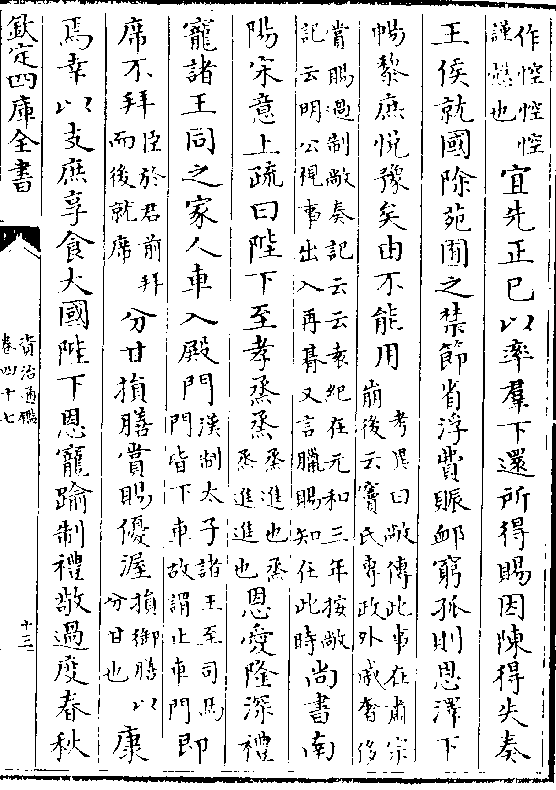 作悾悾悾
謹慤也
宜先正已以率羣下還所得賜因陳得失奏
王侯就國除苑囿之禁節省浮費賑卹窮孤則恩澤下
暢黎庶悅豫矣由不能用
考異曰敞傳此事在肅宗
崩後云竇氏專政外戚奢侈
賞賜過制敞奏記云云袁紀在元和三年按敞
記云明公視事出入再朞又言臘賜知在此時
尚書南
陽宋意上疏曰陛下至孝烝烝
烝進也烝
烝進進也
恩愛隆深禮
寵諸王同之家人車入殿門
漢制太子諸王至司馬
門皆下車故謂止車門
即
席不拜
臣於君前拜
而後就席
分甘損膳賞賜優渥
損御膳
分甘也
以康
焉幸以支庶享食大國陛下恩寵踰制禮敬過度春秋
欽定四庫全書
資治通鑑
卷四十七
十三